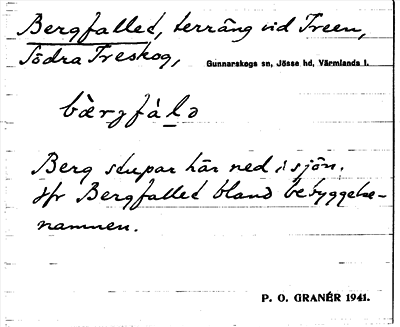 Bergfallet, terräng vid Treen,
Södra Treskog, Gunnarskogs sn, Jösse hd, Värmlands l.
bæ̀rgfálə
Berg stupar här ned i sjön.
Jfr Bergfallet bland bebyggelse-
namnen.
P. O. GRANÉR 1941.